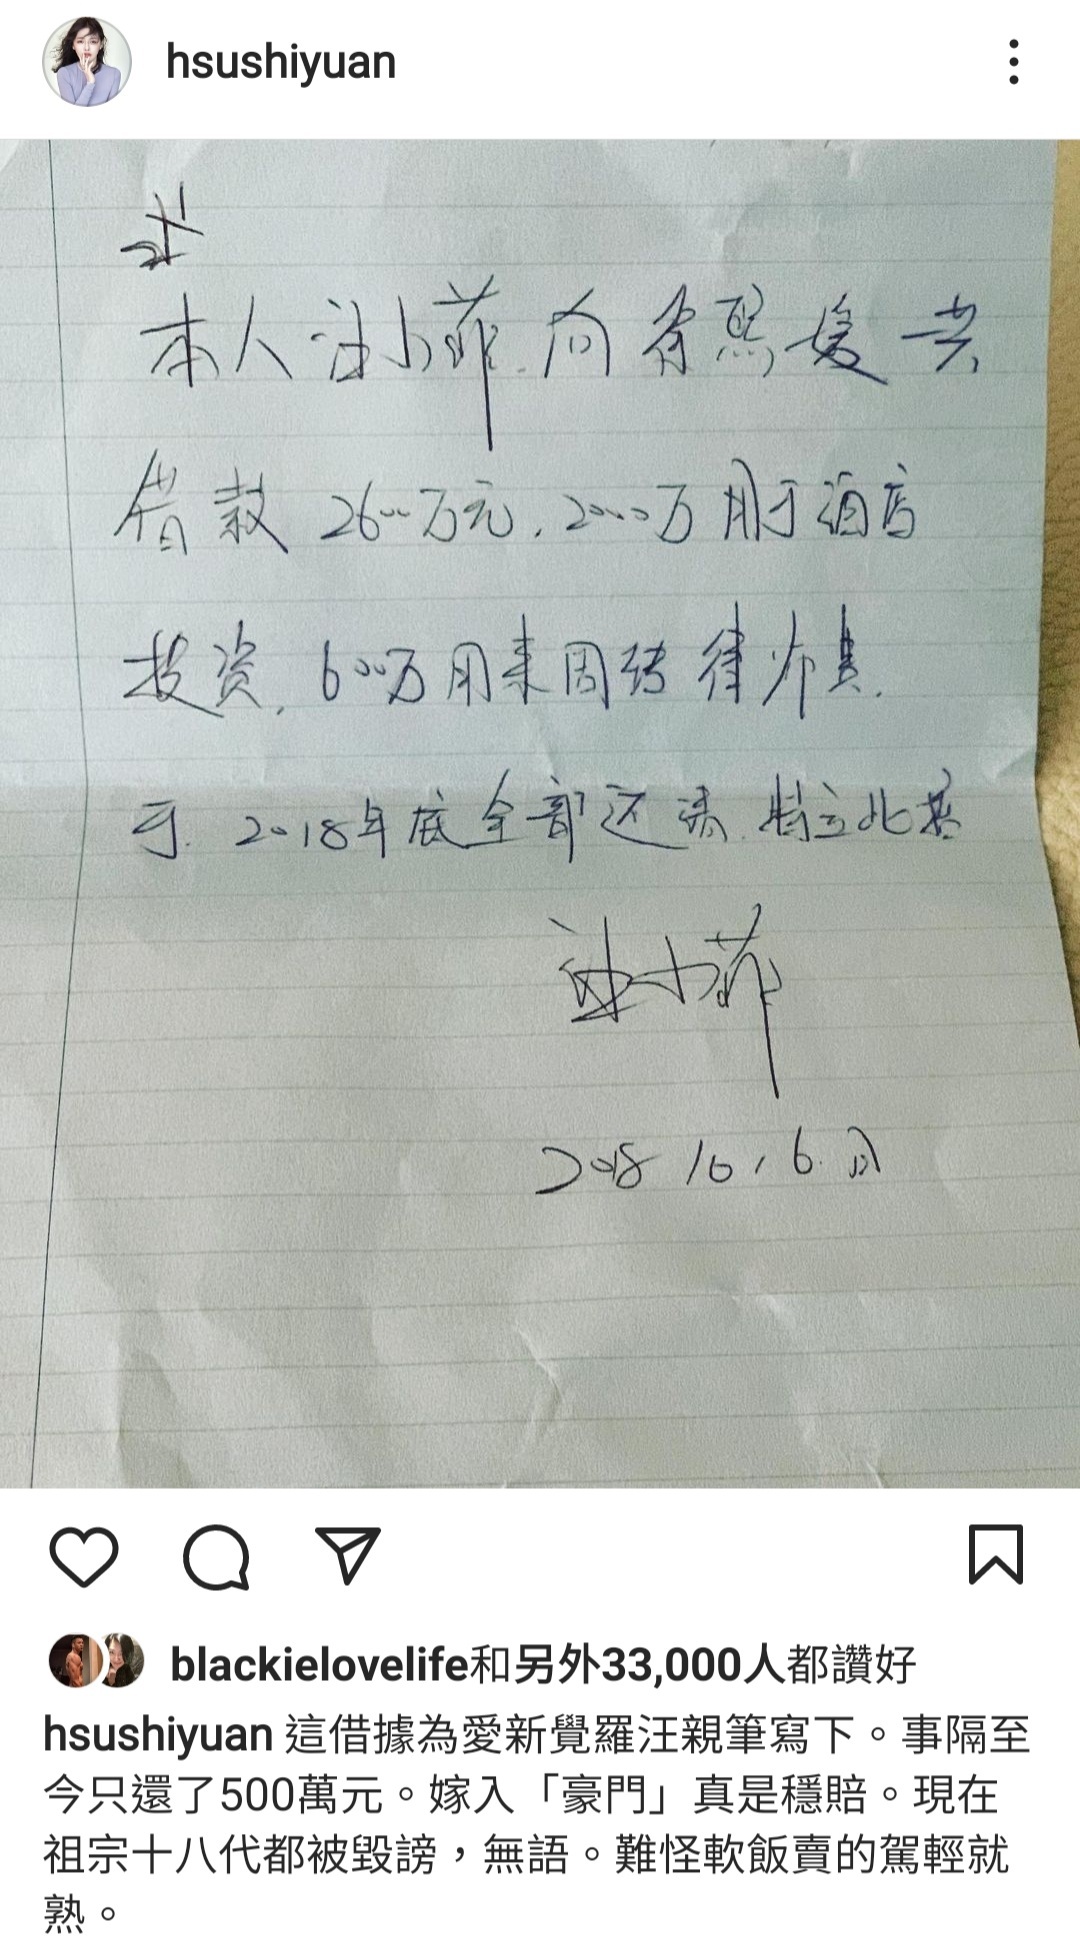 hsushiyuan
本人汪小菲.向徐熙媛共
借款2600万元.2000万用于酒店
投资.600万用来周转律师费.
于.2018年底全部还清.特立此据
汪小菲
2018 10,6.
blackielovelife和另外33,000人都讚好
hsushiyuan 這借據為愛新覺羅汪親筆寫下。事隔至
今只還了500萬元。嫁入「豪門」真是穩賠。現在
祖宗十八代都被毀謗，無語。難怪軟飯賣的駕輕就
熟。